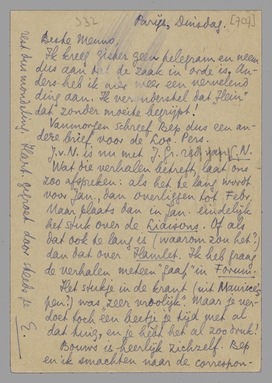 332
Parijs, Dinsdag. [704]
Beste Menno,
Ik kreeg gister geen telegram en neem
dus aan dat de zaak in orde is. An-
ders heb ik hier weer een vervelend
ding aan. Ik veronderstel dat "Hein"
dat zonder moeite begrijpt!
Vanmorgen schreef Bep dus een an-
dere brief voor de Loc. Pers.
J.v.N. is nu met J. Gr. V.N.
Wat die verhalen betreft, laat ons
zoo afspreken: als het te lang wordt
voor Jan., dan overliggen tot Febr.
Maar plaats dan in Jan. eindelijk
het stuk over de Liaisons. Of als
dat ook te lang is (waarom zou het?)
dan dat over Hamlet. Ik heb graag
de verhalen meteen "gaaf" in Forum.
Het stukje in de krant (uit
) was "zeer vroolijk". Maar je ver-
doet toch een beetje je tijd met al
dat ding, en je hebt het al zoo druk!
Bouws is heerlijk zichzelf. Bep
en ik smachten naar de correspon-
Hart. gegroet door steeds je E.